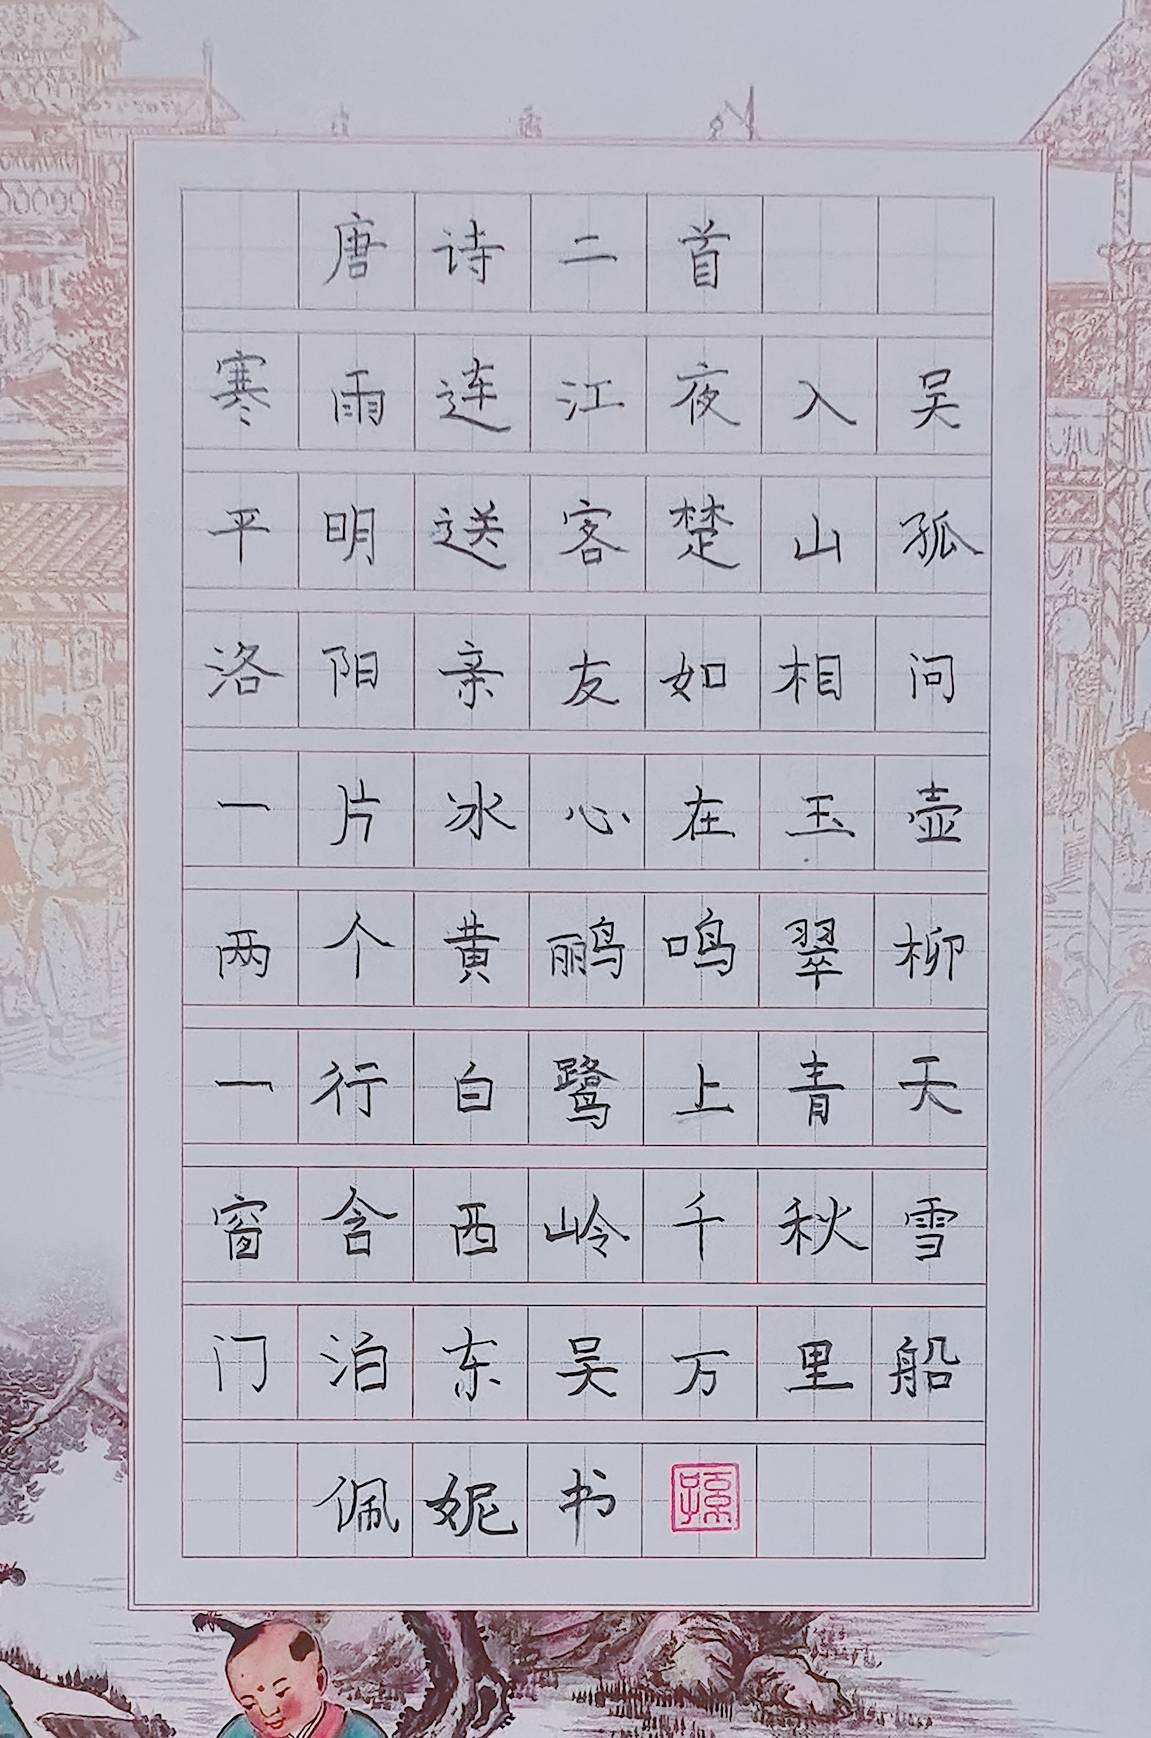 唐诗二首
寒雨连江夜入吴
平明送客楚山孤
洛阳亲友如相问
一片冰心在玉壶
两个黄鹂鸣翠柳
一行白鹭上青天
窗含西岭千秋雪
门泊东吴万里船
佩妮书